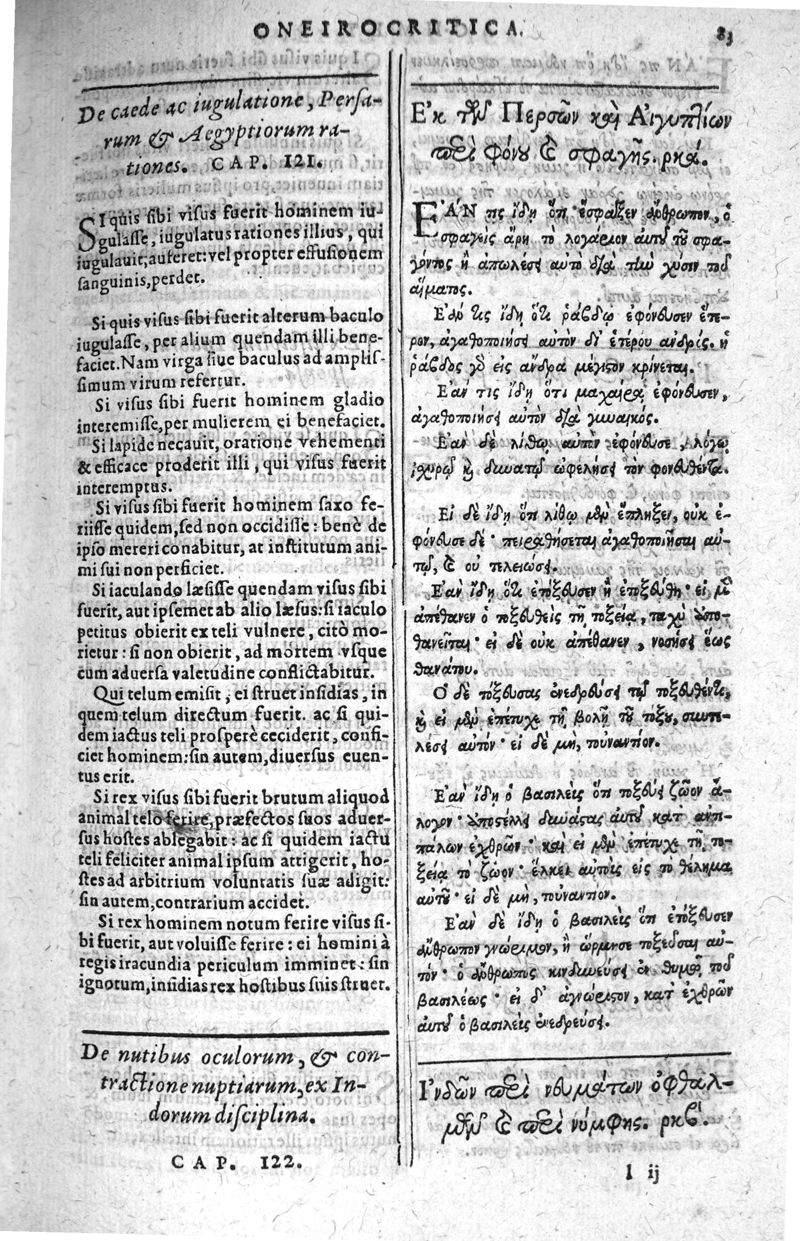 ONEIROCRITICA.
83
De caede ac iugulatione, Persa-
rum & Aegyptiorum ra-
tiones. CAP. 121.
SI quis sibi visus fuerit hominem iu-
gulasse, iugulatus rationes illius, qui
iugulauit, auferet: vel propter effusionem
sanguinis, perdet.
Si quis visus sibi fuerit alterum baculo
iugulasse, per alium quendam illi bene-
faciet. Nam virga siue baculus ad amplis-
simum virum refertur.
Si visus sibi fuerit hominem gladio
interemisse, per mulierem ei benefaciet.
Si lapide necauit, oratione vehementi
& efficace proderit illi, qui visus fuerit
interemptus.
Si visus sibi fuerit hominem saxo fe-
riisse quidem, sed non occidisse: benè de
ipso mereri conabitur, at institutum ani-
mi sui non perficiet.
Si iaculando læsisse quendam visus sibi
fuerit, aut ipsemet ab alio læsus: si iaculo
petitus obierit ex teli vulnere, citò mo-
rietur: si non obierit, ad mortem vsque
cum aduersa valetudine conflictabitur.
Qui telum emisit, ei struet insidias, in
quem telum directum fuerit. ac si qui-
dem iactus teli prosperè ceciderit, confi-
ciet hominem: sin autem, diuersus euen-
tus erit.
Si rex visus sibi fuerit brutum aliquod
animal telo ferire, præfectos suos aduer-
sus hostes ablegabit: ac si quidem iactu
teli feliciter animal ipsum attigerit, ho-
stes ad arbitrium voluntatis suæ adigit:
sin autem, contrarium accidet.
Si rex hominem notum ferire visus si-
bi fuerit, aut voluisse ferire: ei homini à
regis iracundia periculum imminet: sin
ignotum, insidias rex hostibus suis struet.
De nutibus oculorum, & con-
tractione nuptiarum, ex In-
dorum disciplina.
CAP. 122.
Ἐκ τῶν Περσῶν καὶ Αἰγυπτίων
περὶ φόνου καὶ σφαγῆς. ρκά.
ΕΑΝ τις ἴδῃ ὅτι ἔσφαξεν ἄνθρωπον, ὁ
σφαγεὶς ἄρῃ τὸ λογάριον αὐτοῦ τοῦ σφα-
γοντος ἢ ἀπωλέσει αὐτὸ διὰ τὴν χύσιν τοῦ
αἵματος.
Ἐάν τις ἴδῃ ὅτι ῥάβδῳ ἐφόνευσεν ἕτε-
ρον, ἀγαθοποιήσει αὐτὸν δι' ἑτέρου ανδρὸς. ἡ
ῥάβδος γὸ εἰς ἄνδρα μέγιστον κρίνεται.
Ἐάν τις ἴδῃ ὅτι μαχαίρᾳ ἐφόνευσεν,
ἀγαθοποιήσει αὐτὸν διὰ γυναικός.
Ἐὰν δὲ λίθῳ αὐτὸν ἐφόνευσε, λόγῳ
ἰσχυρῷ καὶ δυνατῷ ὠφελήσει τὸν φονευθέντα.
Εἰ δὲ ἴδῃ ὅτι λίθῳ μὲν ἔπληξεν, οὐκ ἐ-
φόνευσε δὲ· πειραθήσεται ἀγαθοποιῆσαι αὐ-
τῷ, καὶ οὐ τελειώσει.
Ἐὰν ἴδῃ ὅτι ἐτόξευσεν ἢ ἐτοξεύθη· εἰ μὲν
ἀπέθανεν ὁ τοξευθεὶς τῇ τοξείᾳ, ταχὺ ἀπο-
θανεῖται· εἰ δὲ οὐκ ἀπέθανεν, νοσήσει ἕως
θανάτου.
Ὁ δὲ τοξεύσας ἐνεδρεύσει τῷ τοξευθέντι,
καὶ εἰ μὲν ἐπέτυχε τῇ βολῇ τοῦ τόξου, συντε-
λέσει αὐτόν· εἰ δὲ μὴ, τοὐναντίον.
Ἐὰν ἴδῃ ὁ βασιλεὺς ὅτι τοξεύει ζῶον ἄ-
λογον· ἀποστέλλει δυνάστας αὐτοῦ κατ' ἀντι-
πάλων ἐχθρῶν· καὶ εἰ μὲν ἐπέτυχε τῇ το-
ξείᾳ τὸ ζῶον· ἕλκει αὐτοὺς εἰς τὸ θέλημα
αὐτοῦ· εἰ δὲ μὴ, τοὐναντίον.
Ἐὰν δὲ ἴδῃ ὁ βασιλεὺς ὅτι ἐτόξευσεν
ἄνθρωπον γνώριμον, ἢ ὥρμησε τοξεῦσαι αὐ-
τόν· ὁ ἄνθρωπος κινδυνεύσει ἐν θυμῷ τοῦ
βασιλέως· εἰ δ' ἀγνώριστον, κατ' ἐχθρῶν
αὐτοῦ ὁ βασιλεὺς ἐνεδρεύσει.
Ἰνδῶν περὶ νευμάτων ὀφθαλ-
μῶν καὶ περὶ νύμφης. ρκβ΄.
l ij